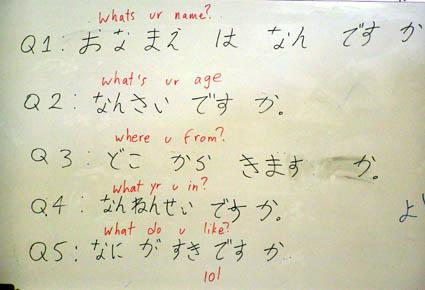 whats ur name?
Q1: おなまえ は なん です か
what's ur age
Q2: なんさい です か。
where u from?
Q3: どこ から きます か。
what yr u in?
Q4: なんねんせい です か。
what do u like?
Q5: なに が すき です か
よ